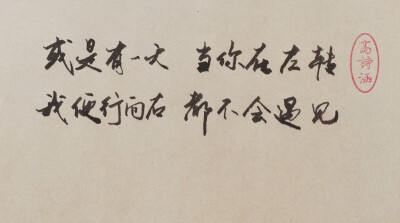 或是有一天 当你在左转
我便行向右 都不会遇见
高诗涵